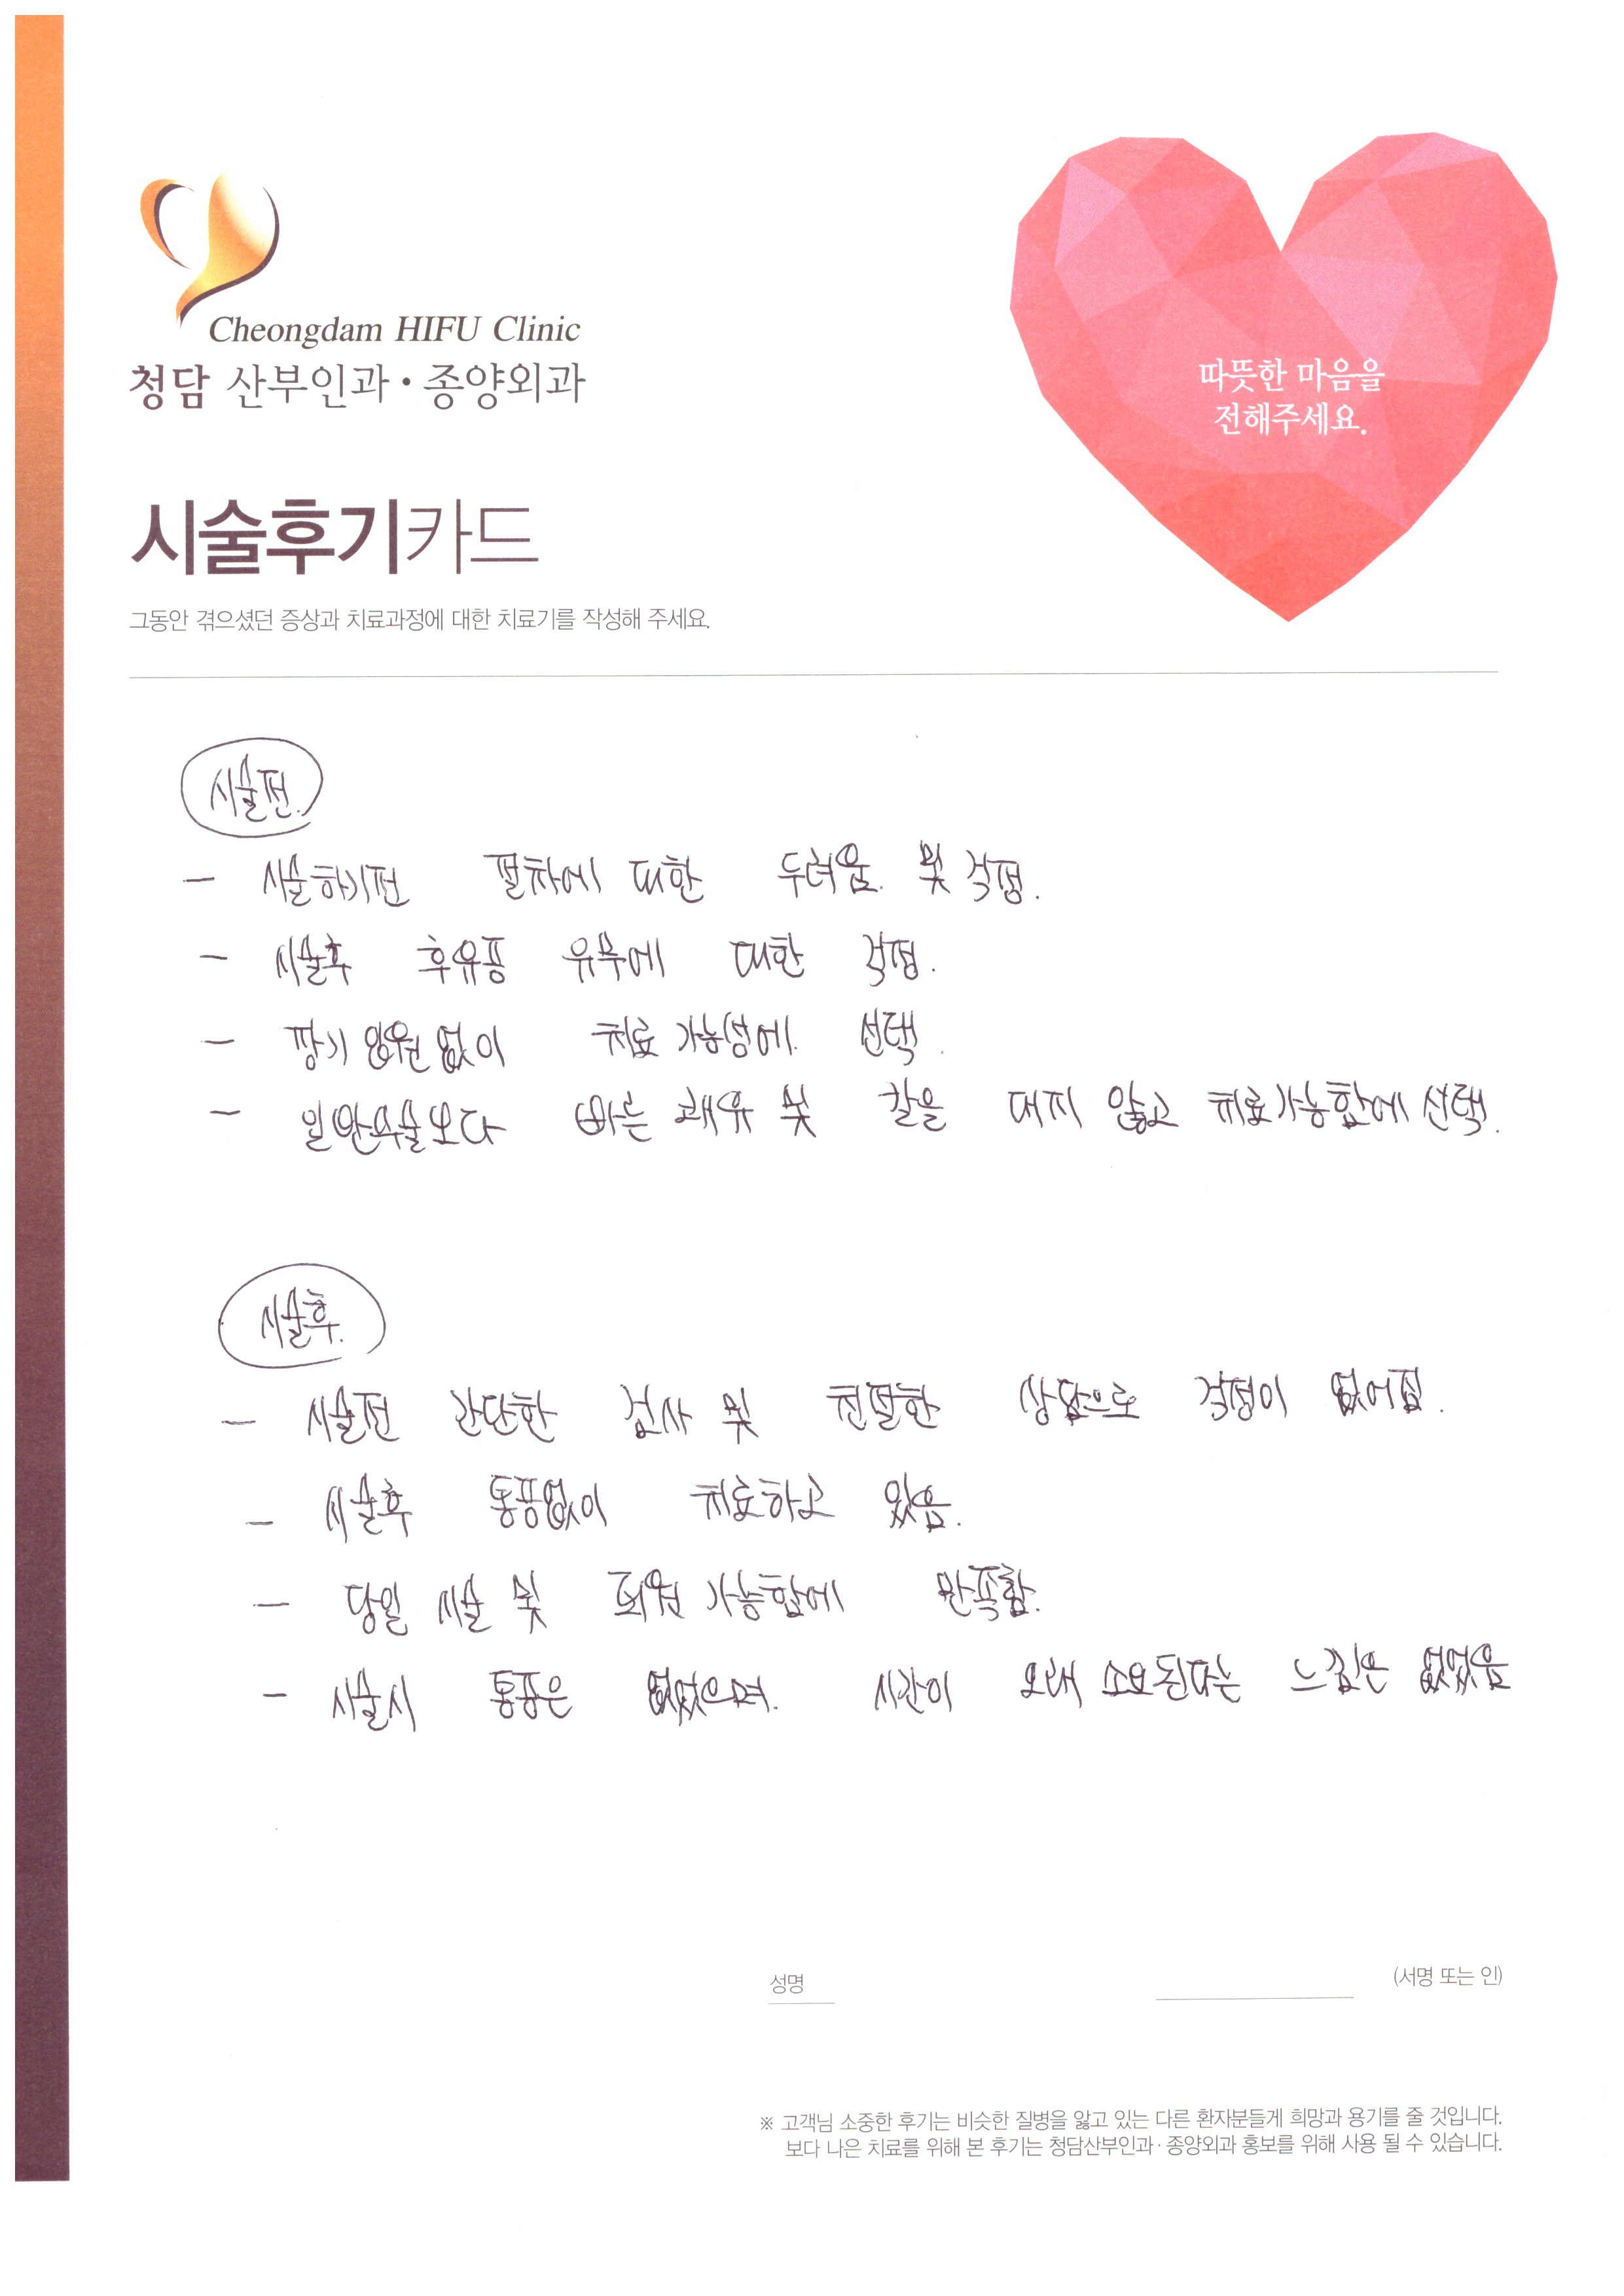 Cheongdam HIFU Clinic
청담 산부인과·종양외과
따뜻한 마음을
전해주세요.
시술후기카드
그동안 겪으셨던 증상과 치료과정에 대한 치료기를 작성해 주세요.
시술전.
- 시술하기전 절차에 대한 두려움. 및 걱정.
- 시술후 후유증 유무에 대한 걱정.
- 장기 입원 없이 치료 가능성에. 선택.
- 일반수술보다 빠른 쾌유 및 칼을 대지 않고 치료가능함에 선택.
시술후.
- 시술전 간단한 검사 및 친절한 상담으로 걱정이 없어짐.
- 시술후 통증없이 치료하고 있음.
- 당일 시술 및 퇴원 가능함에 만족함.
- 시술시 통증은 없었으며. 시간이 오래 소요된다는 느낌은 없었음
성명 (서명 또는 인)
※ 고객님 소중한 후기는 비슷한 질병을 앓고 있는 다른 환자분들게 희망과 용기를 줄 것입니다.
보다 나은 치료를 위해 본 후기는 청담산부인과·종양외과 홍보를 위해 사용 될 수 있습니다.